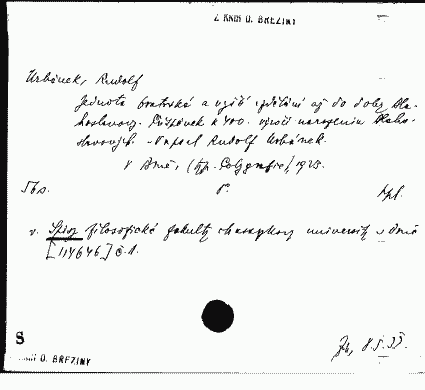 Z KNIH O. BŘEZINY
Urbánek, Rudolf
Jednota bratrská a vyšší vzdělání až do doby Bla-
hoslavovy. Příspěvek k 400. výročí narození Blaho-
slavových. Napsal Rudolf Urbánek.
V Brně, (typ. Polygrafie) 1923.
56 s. 8°. kpl.
v. Spisy filosofické fakulty Masarykovy university v Brně
[114646] č. 1.
S
KNIH O. BŘEZINY